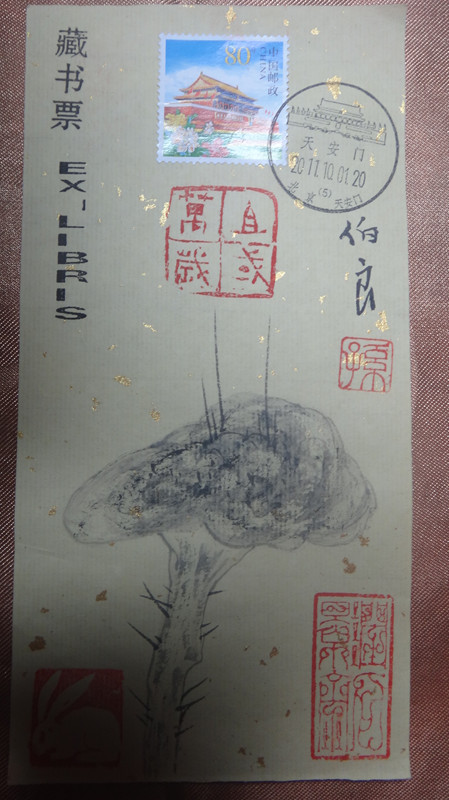 藏书票
EX-LIBRIS
80
中国邮政
CHINA
天安门
2011.10.01.20
北京(5)天安门
伯良
萬歲
孫